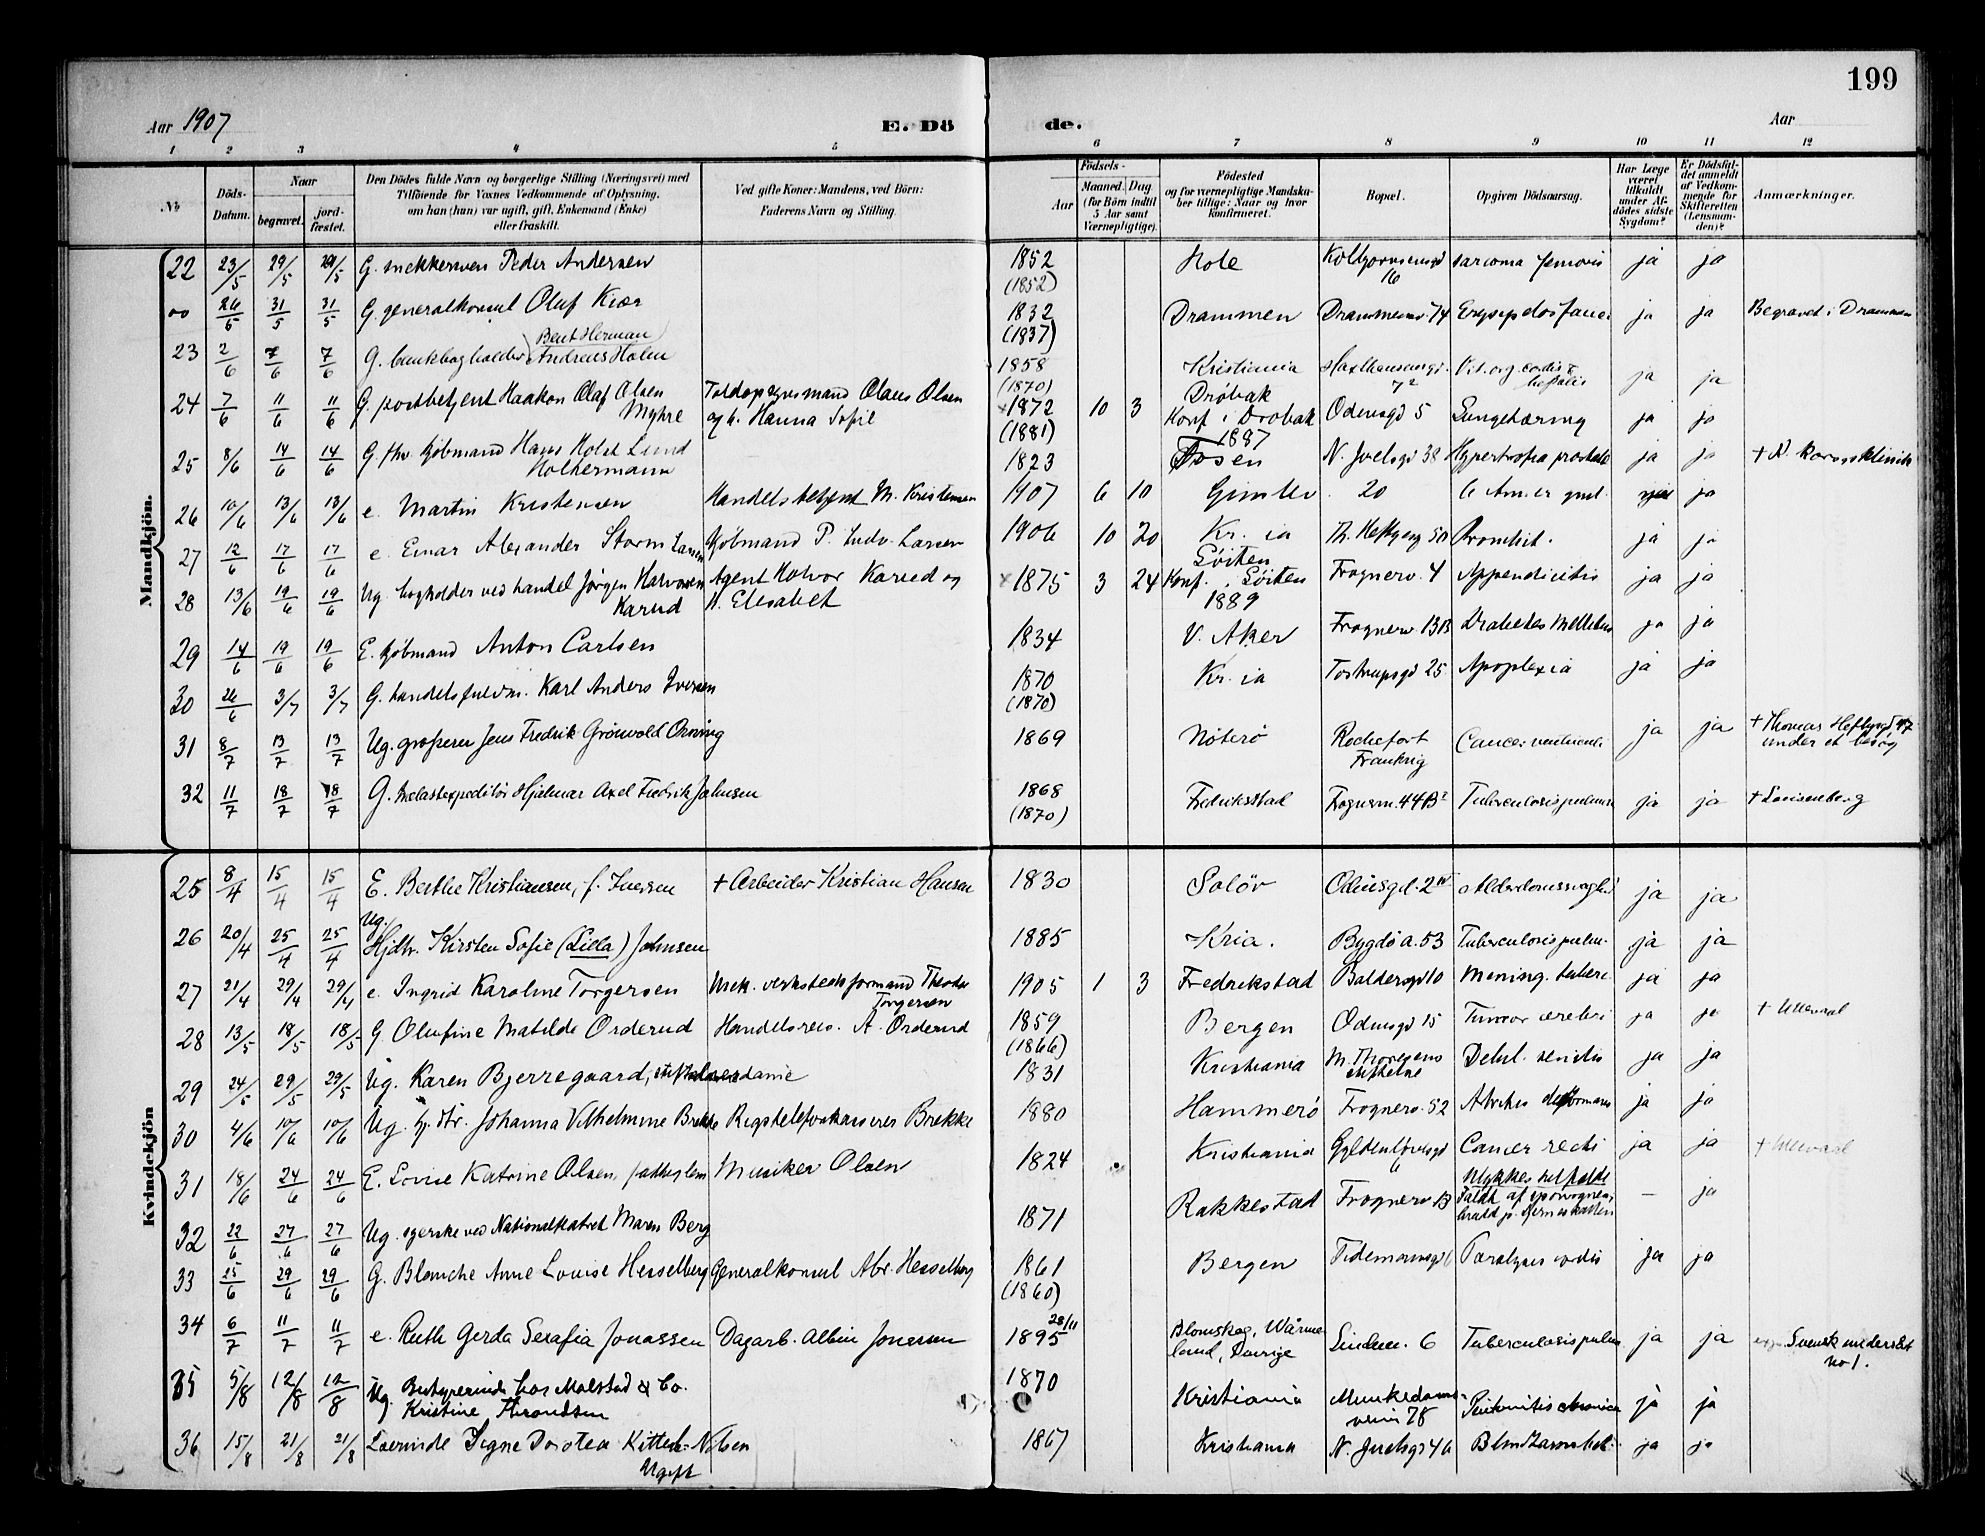 199
Aar 1907
E. Dö de.
Aar
1 2 3 4 5 6 7 8 9 10 11 12
No
Döds-Datum.
Naar
begravet. jordfæstet.
Den Dödes fulde Navn og borgerlige Stilling (Næringsvei) med
Tilföiende for Voxnes Vedkommende af Oplysning,
om han (hun) var ugift, gift, Enkemand (Enke)
eller fraskilt.
Ved gifte Koner: Mandens, ved Börn:
Faderens Navn og Stilling.
Födsels-
Aar
Maaned. Dag
(for Börn indtil
5 Aar samt
Værnepligtige).
Födested
og for værnepligtige Mandska-
ber tillige: Naar og hvor
konfirmeret.
Bopæl.
Opgiven Dödsaarsag.
Har Læge
været
tilkaldt
under Af-
dödes sidste
Sygdom?
Er Dödsfal-
det anmeldt
af Vedkom-
mende for
Skifteretten
(Lensman-
den)?
Anmærkninger.
Mandkjön.
22 23/5 29/5 29/5 G. snekkersven Peder Andersen 1852 (1852) Hole 16 sarcoma femoris ja ja
26/5 31/5 31/5 G. generalkonsul Olaf Kiær 1832 (1837) Drammen Drammensv. 74 ja ja Begravet i Drammen
23 2/6 7/6 7/6 G. bankbogholder Bent Herman Andreas Holm 1858 (1870) Kristiania Vit. org. cordis & hepatis ja ja
24 7/6 11/6 11/6 G. postbetjent Haakon Olaf Olsen Myhre Toldopsynsmand Olaus Olsen og h. Hanna Sofie × 1872 (1881) 10 3 Drøbak Konf i Drøbak 1887 Odinsgd 5 Lungetæring ja ja
25 8/6 14/6 14/6 G. fhv kjøbmand Hans Holst Lund Holtermann 1823 Fosen N. Juelsgd 38 Hypertrofia prostatæ ja ja
26 10/6 13/6 13/6 e. Martin Kristensen Handelsbetjent M. Kristensen 1907 6 10 Gimlev. 20 ja
27 12/6 17/6 17/6 e. Einar Alexander Storm Larsen Kjøbmand P. Ludv. Larsen 1906 10 20 Kr. ia Th. Heftyesg 50 Bronkit. ja ja
28 13/6 19/6 19/6 Ug. bogholder ved handel Jørgen Halvorsen Karud Agent Halvor Karud og H. Elisabet × 1875 3 24 Løiten Konf. i Løiten 1889 Frognerv. 4 Appendicitis ja ja
29 14/6 19/6 19/6 E. kjøbmand Anton Carlsen 1834 V. Aker Frognerv. 13B Diabetes Mellitus ja ja
30 26/6 3/7 3/7 G. handelsfuldm. Karl Anders Iversen 1870 (1870) Kr. ia Tostrupsgd 25 Apoplexia ja ja
31 8/7 13/7 13/7 Ug. grosserer Jens Fredrik Grönvold Orning 1869 Nøterø Rochefort Frankrig Cancer ventriculi ja ja + Thomas Heftyesgd 47 under et besøg
32 11/7 18/7 18/7 G. Hjalmar Axel Fredrik Johnsen 1868 (1870) Fredrikstad Frognerv. 44B² Tuberculosis pulmon ja ja + Louisenberg
Kvindekjön
25 8/4 15/4 15/4 E. Berthe Kristiansen, f. Iversen + Arbeider Kristian Hansen 1830 Solör Odinsgd. 2 IV Alderdomssvaghed ja ja
26 20/4 25/4 25/4 Ug. Hjdtr. Kirsten Sofie (Lilla) Johnsen 1885 Kria. Bygdö a. 53 Tuberculosis pulm. ja ja
27 21/4 29/4 29/4 e. Ingrid Karoline Torgersen Mek. verkstedsformand Theodor Torgersen 1905 1 3 Fredrikstad Baldersgd 10 Mening. tuberc. ja ja
28 13/5 18/5 18/5 G Olufine Matilde Orderud Handelsreis. A. Orderud 1859 (1866) Bergen Odinsgd 15 Tumor cerebri ja ja + Ullevaal
29 24/5 29/5 29/5 Ug. Karen Bjerregaard, stiftelsesdame 1831 Kristiania M. Thoresens stiftelse Debil. senilis ja ja
30 4/6 10/6 10/6 Ug. hj. dtr. Johanna Vilhelmine Brekke Rigstelefonkasserer Brekke 1880 Hammerö Frognerv. 52 ja ja
31 18/6 24/6 24/6 E. Lovise Katrine Olsen, fattiglem Musiker Olsen 1824 Kristiania Gyldenløvesgd 6 Cancer recti ja ja + Ullevaal
32 22/6 27/6 27/6 Ug. syerske ved Nationalteatret Maren Berg 1871 Rakkestad Frognerv. 13 Ulykkestilfælde Faldt af sporvognen, brudd p. hjerneskallen — ja
33 25/6 29/6 29/6 G. Blanche Anne Louise Hesselberg Generalkonsul Abr. Hesselberg 1861 (1860) Bergen Tidemansgd 6 Paralysis cordis ja ja
34 6/7 11/7 11/7 e. Ruth Gerda Serafia Jonassen Dagarb. Albin Jonassen 1895 28/11 Blomskog, Wärmeland, Sverige Lindev. 6 Tuberculosis pulm. ja ja Svensk undersåt no 1.
35 5/8 12/8 12/8 Ug. Bestyrerinde hos Molstad & Co. Kristine Throndsen 1870 Kristiania Munkedamsveien 78 Peritonitis chronica ja ja
36 15/8 21/8 21/8 Lærerinde Signe Dorotea Kittel-Nilsen Ugift 1867 Kristiania N. Juelsgd 46 ja ja